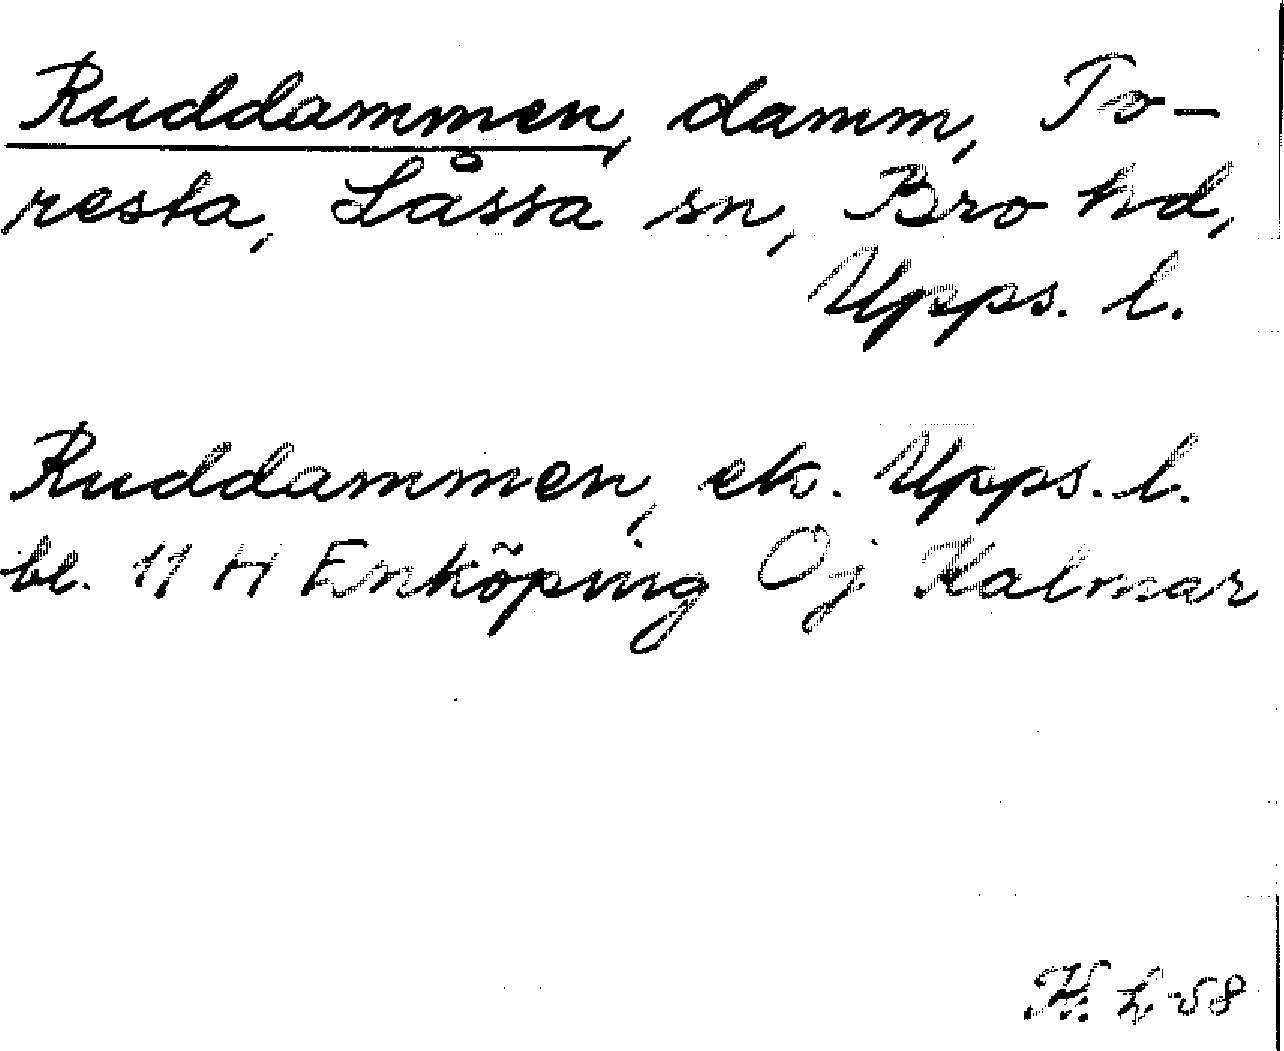 Ruddammen, damm, To-
resta, Låssa sn, Bro hd,
Upps. l.
Ruddammen, ek. Upps. l.
bl. 11 H Enköping Öj Kalmar
K. L. 58